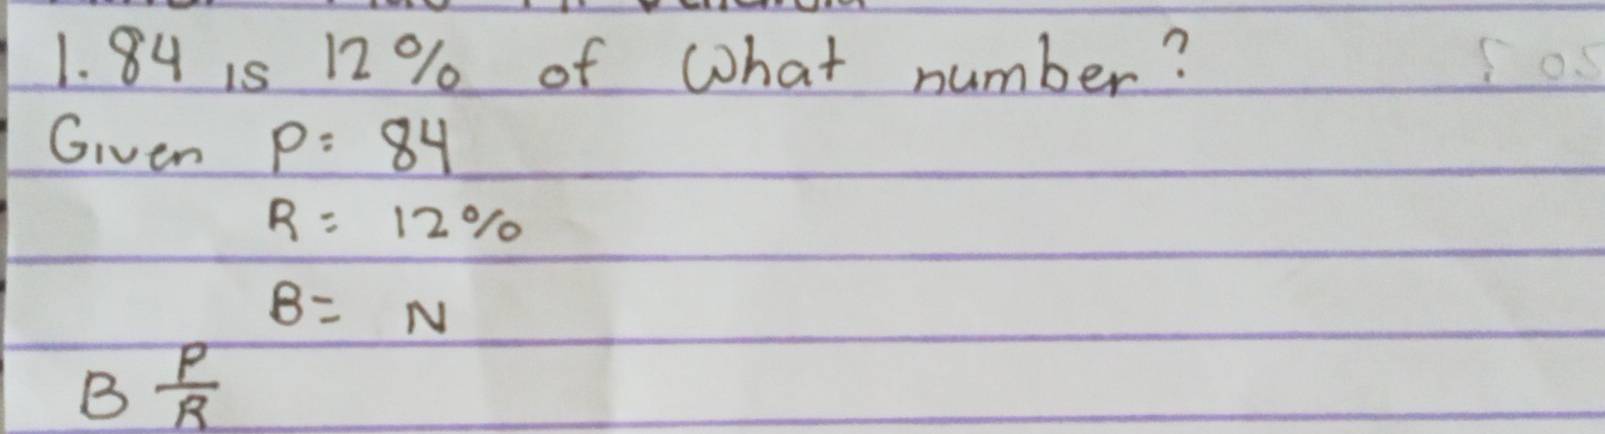 1. 84 is 12% of what number?
Given P= 84
R= 12%
B= N
B P/R